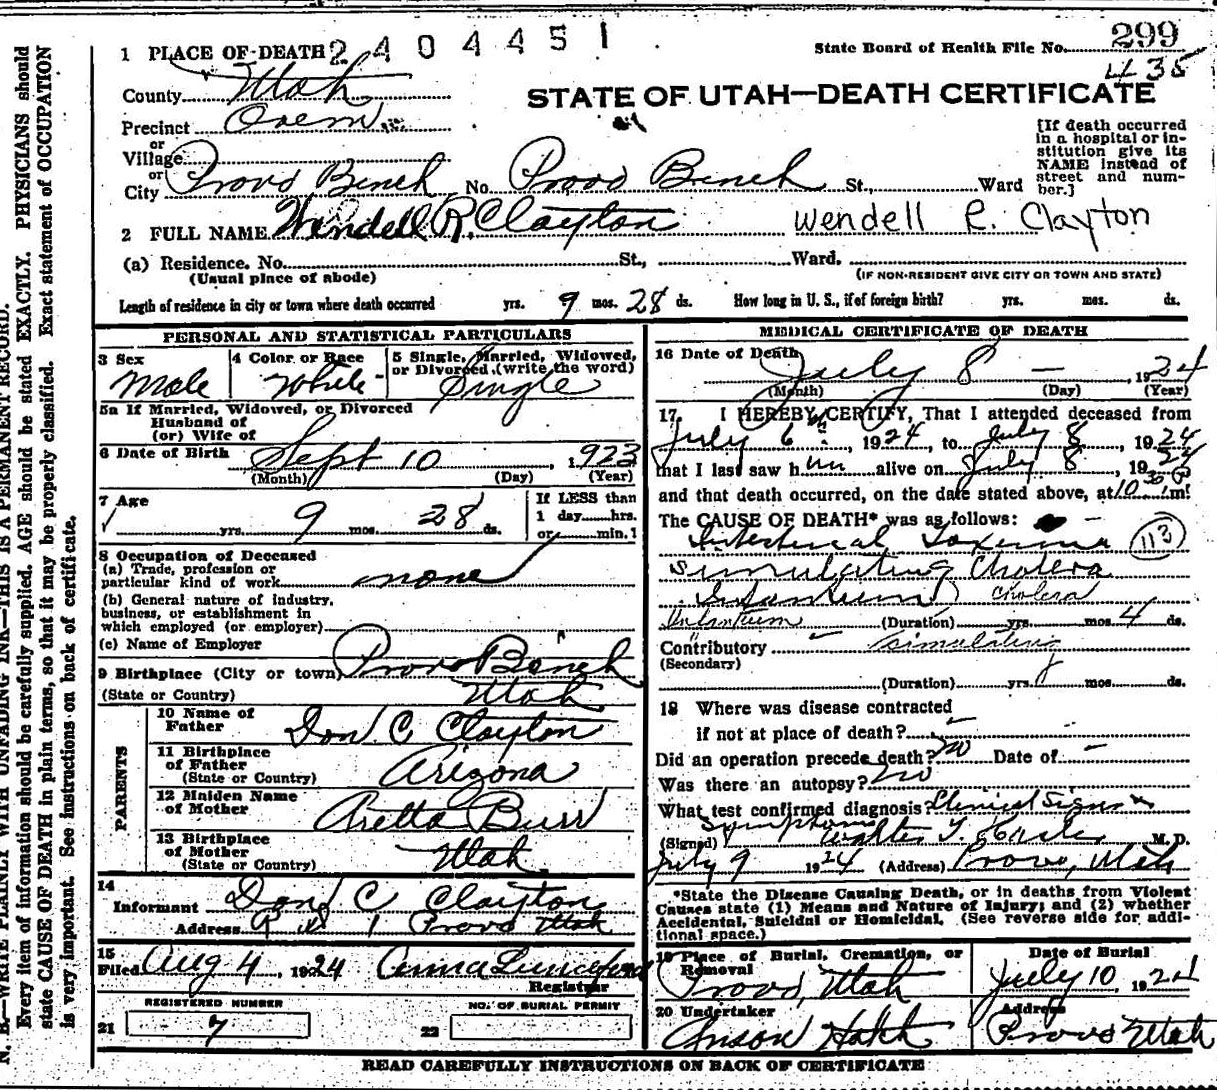 299
2404451
State Board of Health File No.
435
1 PLACE OF DEATH
County Utah
STATE OF UTAH—DEATH CERTIFICATE
Precinct Orem
or
Village
or
City Provo Bench No. Provo Bench St., Ward
[If death occurred
in a hospital or in-
stitution give its
NAME instead of
street and num-
ber.]
2 FULL NAME Wendell R. Clayton Wendell R. Clayton
(a) Residence. No. St., Ward.
(Usual place of abode) (IF NON-RESIDENT GIVE CITY OR TOWN AND STATE)
Length of residence in city or town where death occurred yrs. 9 mos. 28 ds. How long in U. S., if of foreign birth? yrs. mos. ds.
PERSONAL AND STATISTICAL PARTICULARS
3 Sex
Male
4 Color or Race
White
5 Single, Married, Widowed,
or Divorced, (write the word)
Single
5a If Married, Widowed, or Divorced
Husband of
(or) Wife of
6 Date of Birth Sept 10, 1923
(Month) (Day) (Year)
7 Age
yrs. 9 mos. 28 ds.
If LESS than
1 day hrs.
or min.
8 Occupation of Deceased
(a) Trade, profession or
particular kind of work none
(b) General nature of industry,
business, or establishment in
which employed (or employer)
(c) Name of Employer
9 Birthplace (City or town) Provo Bench
(State or Country) Utah
PARENTS
10 Name of
Father Don C Clayton
11 Birthplace
of Father
(State or Country) Arizona
12 Maiden Name
of Mother Aretta Burr
13 Birthplace
of Mother
(State or Country) Utah
14
Informant Don C Clayton
Address R D 1 Provo Utah
15
Filed Aug 4, 1924
Registrar
REGISTERED NUMBER
21 7
NO. OF BURIAL PERMIT
22
MEDICAL CERTIFICATE OF DEATH
16 Date of Death July 8 — 1924
(Month) (Day) (Year)
17 I HEREBY CERTIFY, That I attended deceased from
July 6th, 1924, to July 8, 1924
that I last saw him alive on July 8, 1924
and that death occurred, on the date stated above, at 10 30 P m.
The CAUSE OF DEATH* was as follows:
Intestinal Toxemia 113
simulating Cholera
Infantum cholera
Infantum (Duration) yrs. mos. 4 ds.
Contributory simulating
(Secondary)
(Duration) yrs. mos. ds.
18 Where was disease contracted
if not at place of death?
Did an operation precede death? no Date of —
Was there an autopsy? no
What test confirmed diagnosis? Clinical Signs &
Symptoms
(Signed) Walter T. M. D.
July 9 1924 (Address) Provo, Utah
*State the Disease Causing Death, or in deaths from Violent
Causes state (1) Means and Nature of Injury; and (2) whether
Accidental, Suicidal or Homicidal. (See reverse side for addi-
tional space.)
19 Place of Burial, Cremation, or
Removal
Provo, Utah
Date of Burial
July 10, 1924
20 Undertaker
Anson Hatch
Address
Provo Utah
READ CAREFULLY INSTRUCTIONS ON BACK OF CERTIFICATE
N. B.—WRITE PLAINLY WITH UNFADING INK—THIS IS A PERMANENT RECORD.
Every item of information should be carefully supplied. AGE should be stated EXACTLY. PHYSICIANS should
state CAUSE OF DEATH in plain terms, so that it may be properly classified. Exact statement of OCCUPATION
is very important. See instructions on back of certificate.